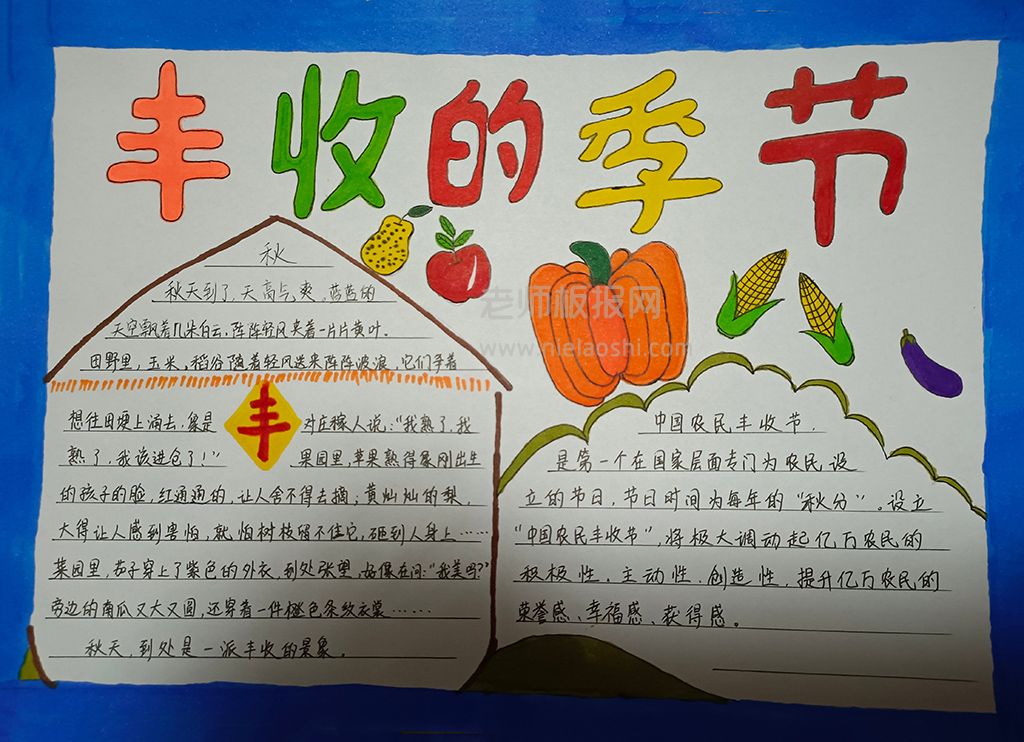 丰收的季节
秋
秋天到了,天高气爽,蓝蓝的
天空飘着几朵白云,阵阵轻风夹着一片片黄叶.
田野里,玉米,稻谷随着轻风送来阵阵波浪,它们争着
丰
想往田埂上涌去,象是
对庄稼人说:“我熟了,我
熟了,我该进仓了!”
果园里,苹果熟得象刚出生
的孩子的脸,红通通的,让人舍不得去摘;黄灿灿的梨,
大得让人感到害怕,就怕树枝留不住它,砸到人身上……
菜园里,茄子穿上了紫色的外衣,到处张望,好像在问:“我美吗?”
旁边的南瓜又大又圆,还穿着一件橙色条纹衣裳……
秋天,到处是一派丰收的景象。
中国农民丰收节.
是第一个在国家层面专门为农民设
立的节日,节日时间为每年的“秋分”。设立
“中国农民丰收节”,将极大调动起亿万农民的
积极性,主动性,创造性,提升亿万农民的
荣誉感、幸福感、获得感。
老师板报网
www.nielaoshi.com